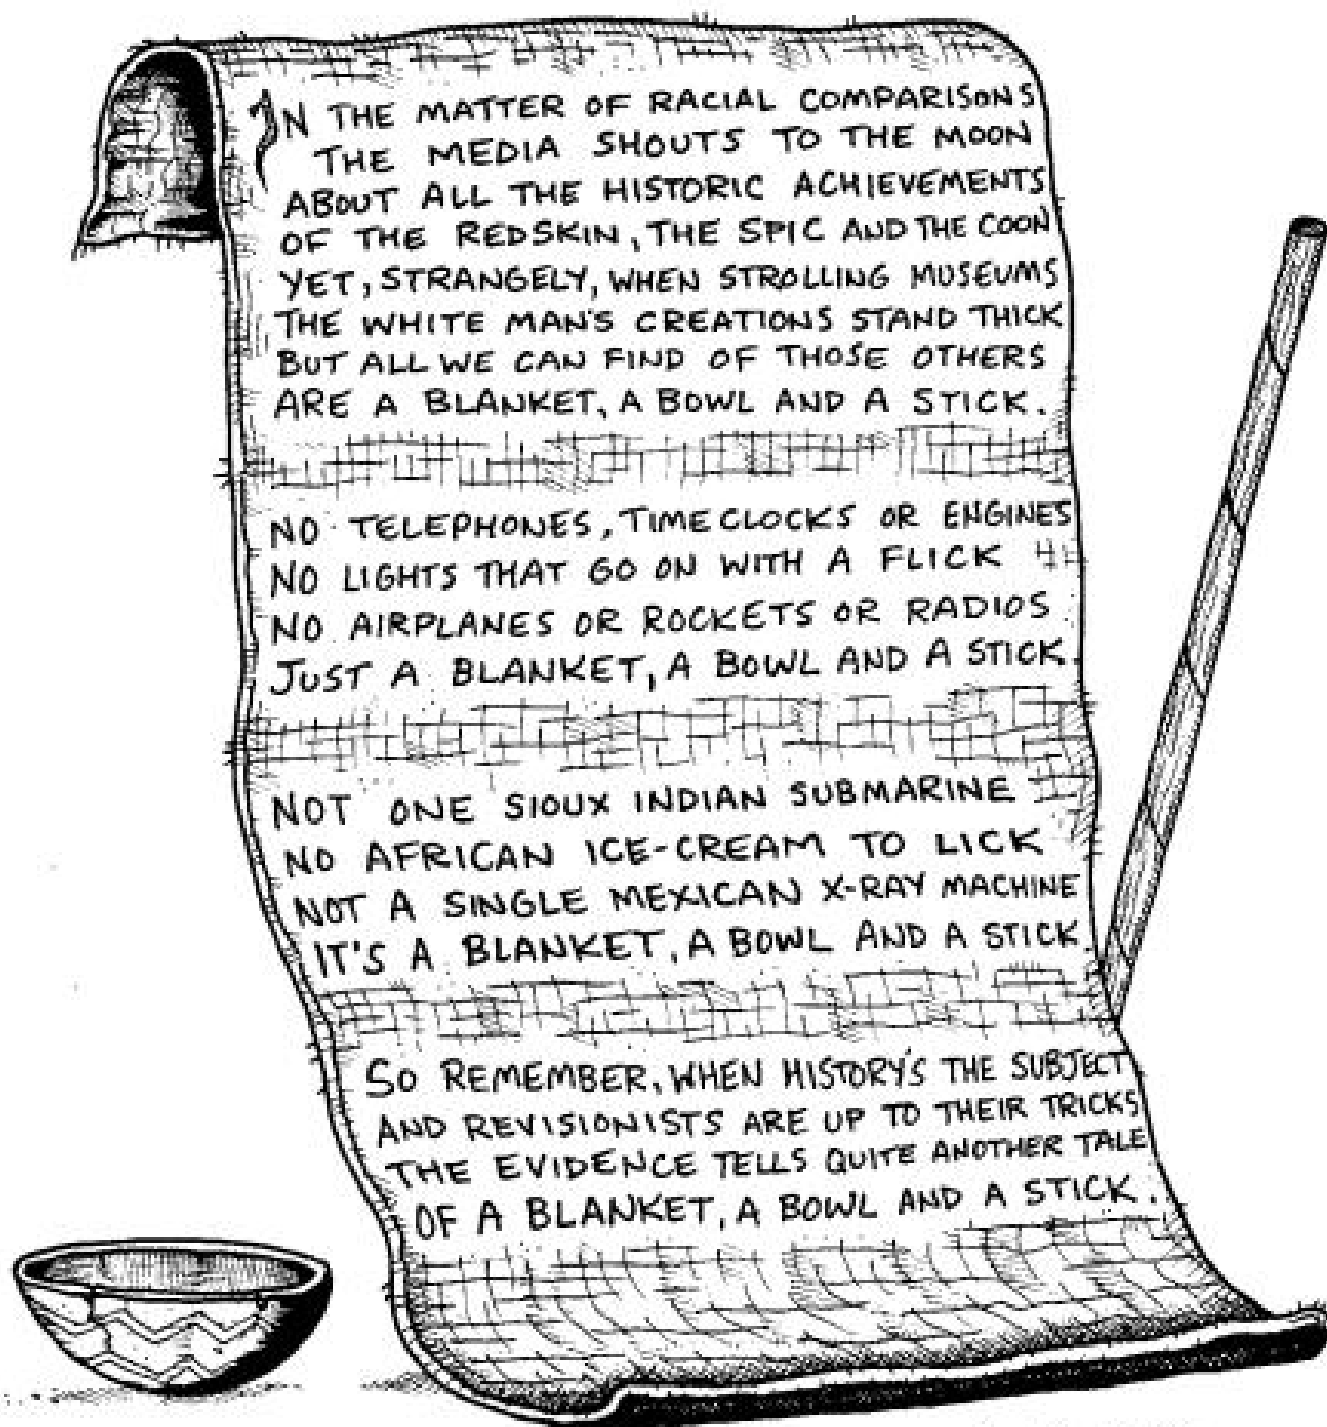 IN THE MATTER OF RACIAL COMPARISONS
THE MEDIA SHOUTS TO THE MOON
ABOUT ALL THE HISTORIC ACHIEVEMENTS
OF THE REDSKIN, THE SPIC AND THE COON
YET, STRANGELY, WHEN STROLLING MUSEUMS
THE WHITE MAN'S CREATIONS STAND THICK
BUT ALL WE CAN FIND OF THOSE OTHERS
ARE A BLANKET, A BOWL AND A STICK.
NO TELEPHONES, TIME CLOCKS OR ENGINES
NO LIGHTS THAT GO ON WITH A FLICK
NO AIRPLANES OR ROCKETS OR RADIOS
JUST A BLANKET, A BOWL AND A STICK.
NOT ONE SIOUX INDIAN SUBMARINE
NO AFRICAN ICE-CREAM TO LICK
NOT A SINGLE MEXICAN X-RAY MACHINE
IT'S A BLANKET, A BOWL AND A STICK.
SO REMEMBER, WHEN HISTORY'S THE SUBJECT
AND REVISIONISTS ARE UP TO THEIR TRICKS
THE EVIDENCE TELLS QUITE ANOTHER TALE
OF A BLANKET, A BOWL AND A STICK.